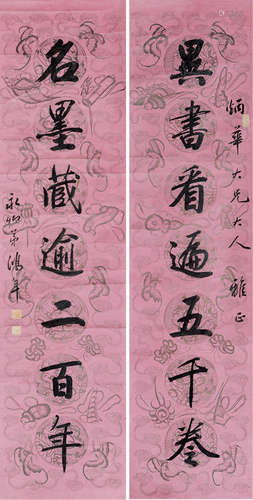 炳華大兄大人 雅正
異書看遍五千卷
名墨藏逾二百年
弟鴻年